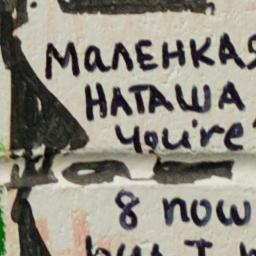 МаЛЕНКАЯ
НАТАША
you're
8 now
but I